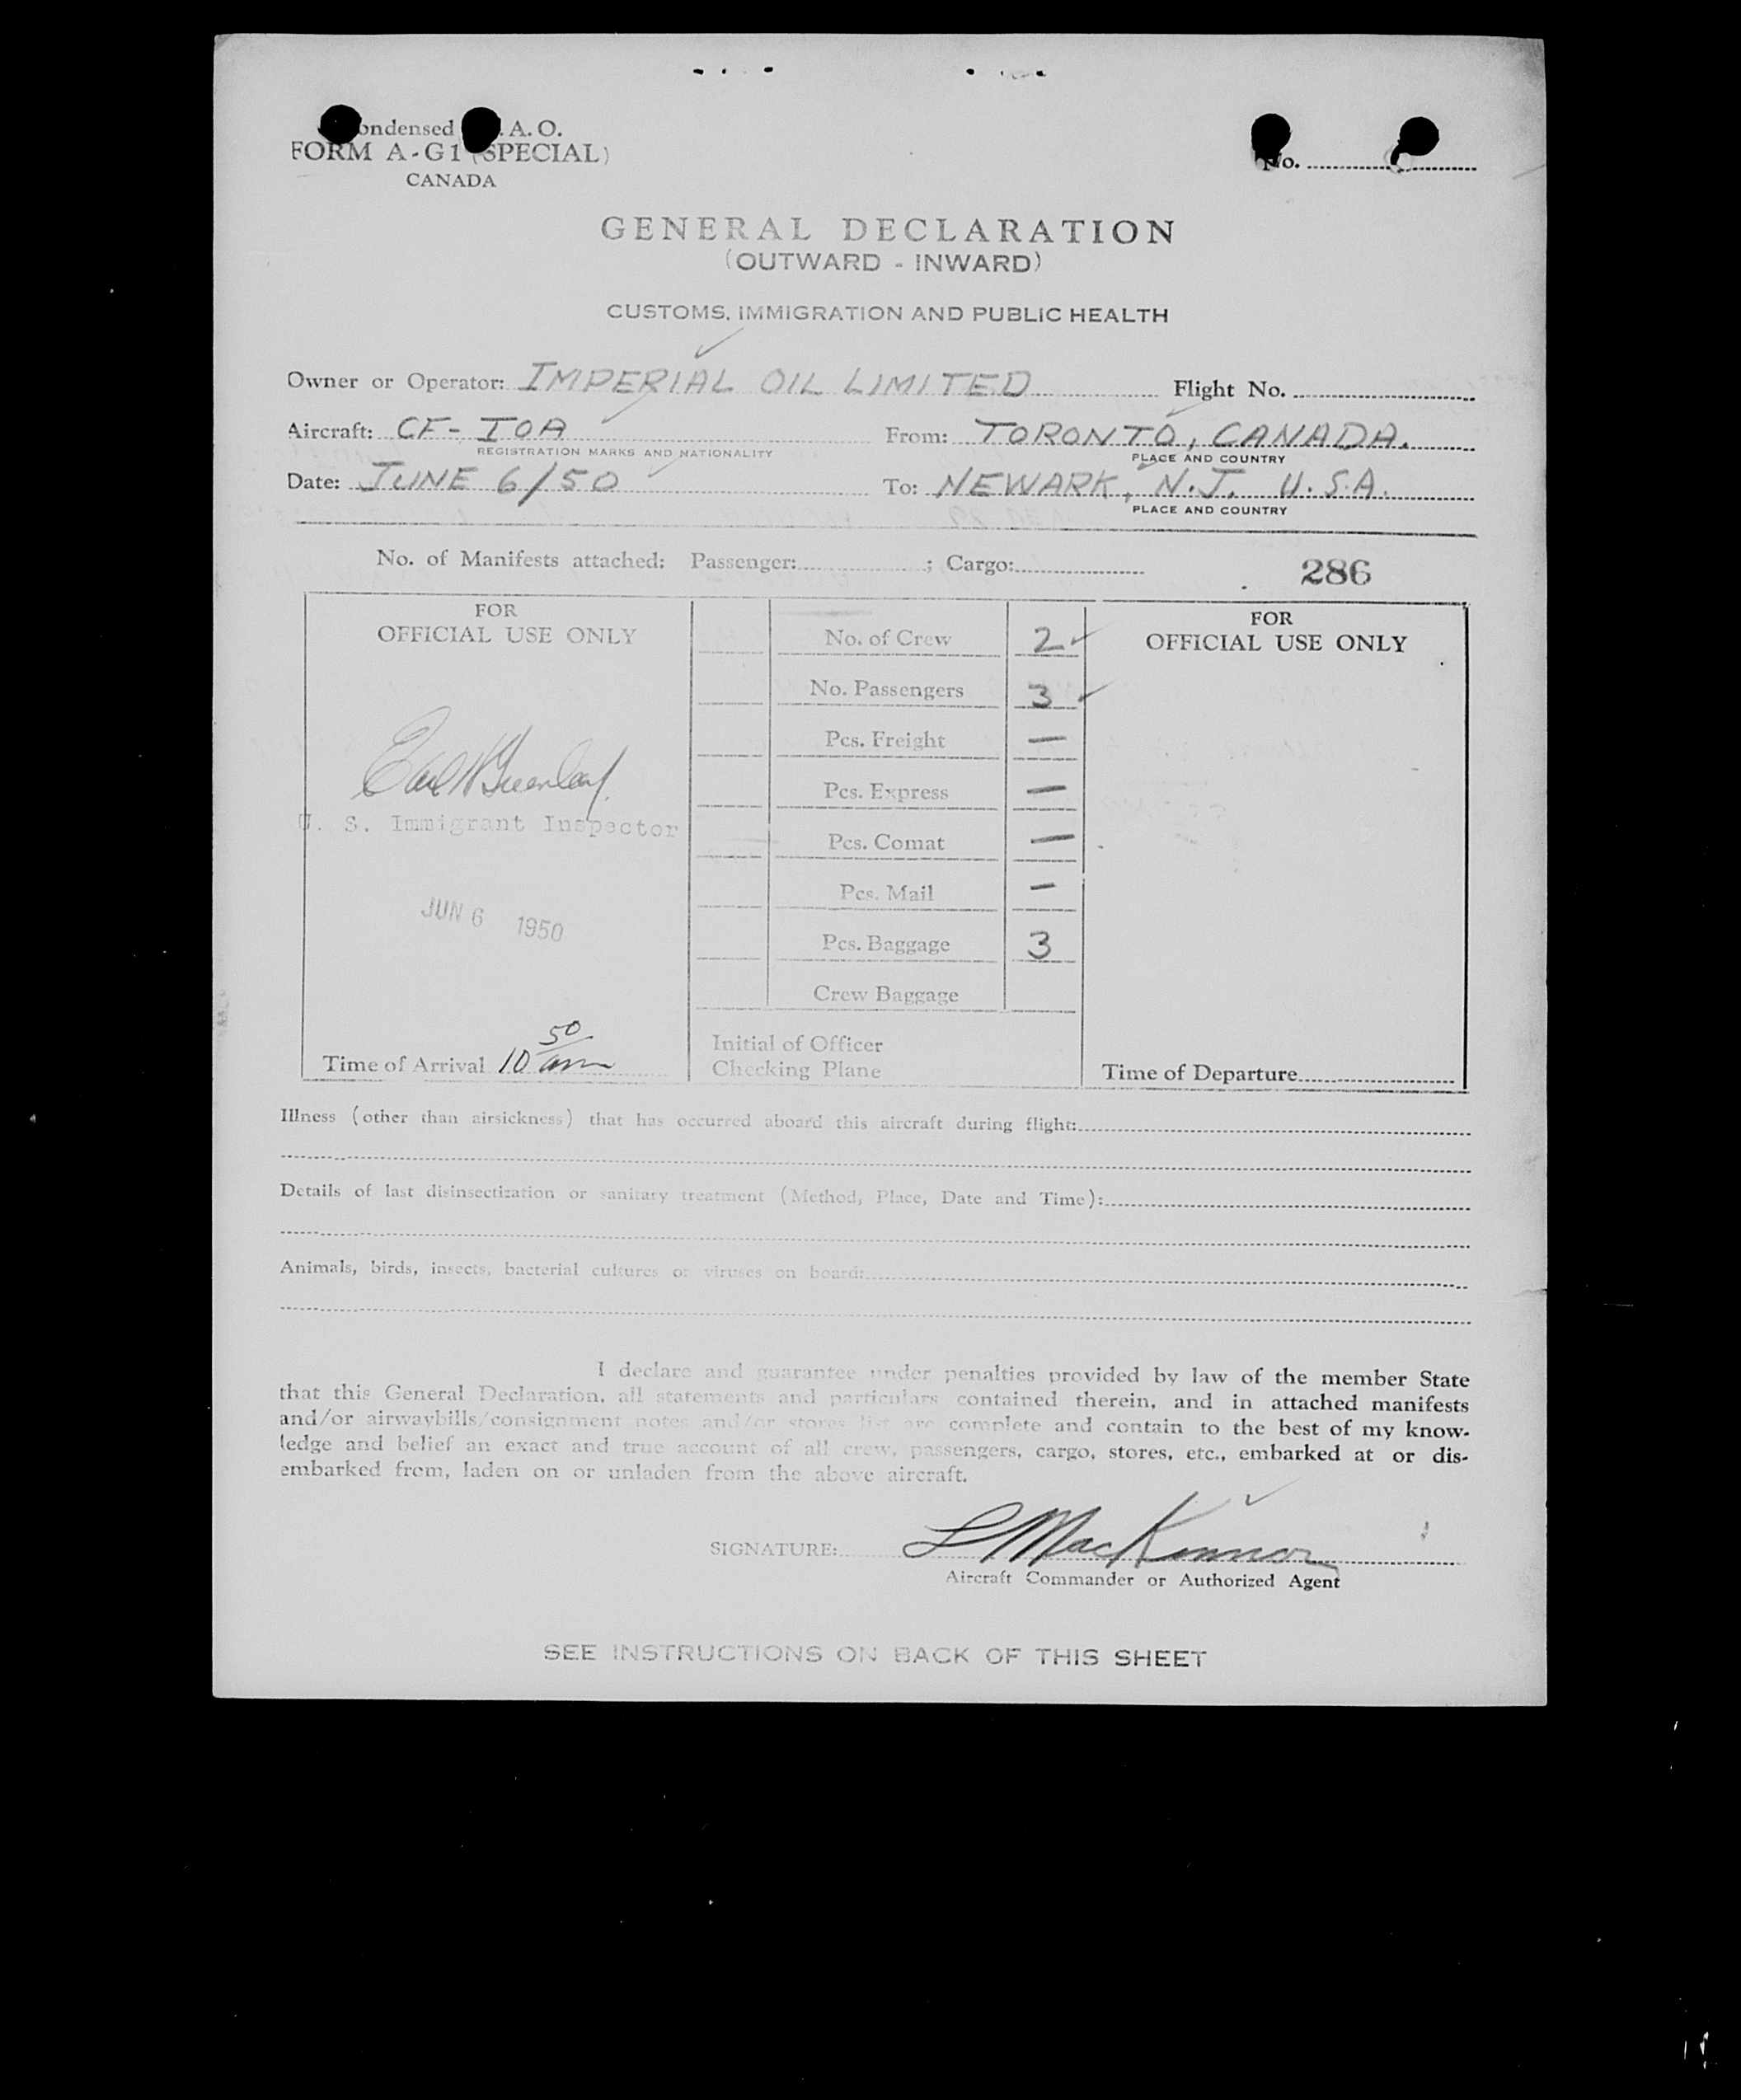 ondensed . A. O.
FORM A-G1 (SPECIAL)
CANADA
No.
GENERAL DECLARATION
(OUTWARD - INWARD)
CUSTOMS, IMMIGRATION AND PUBLIC HEALTH
Owner or Operator: IMPERIAL OIL LIMITED Flight No.
Aircraft: CF-IOA From: TORONTO, CANADA.
REGISTRATION MARKS AND NATIONALITY PLACE AND COUNTRY
Date: JUNE 6/50 To: NEWARK, N.J. U.S.A.
PLACE AND COUNTRY
No. of Manifests attached: Passenger: ; Cargo: 286
FOR
OFFICIAL USE ONLY
U. S. Immigrant Inspector
JUN 6 1950
Time of Arrival 10 50 am
No. of Crew 2
No. Passengers 3
Pcs. Freight —
Pcs. Express —
Pcs. Comat —
Pcs. Mail —
Pcs. Baggage 3
Crew Baggage
Initial of Officer
Checking Plane
FOR
OFFICIAL USE ONLY
Time of Departure
Illness (other than airsickness) that has occurred aboard this aircraft during flight:
Details of last disinsectization or sanitary treatment (Method, Place, Date and Time):
Animals, birds, insects, bacterial cultures or viruses on board:
I declare and guarantee under penalties provided by law of the member State
that this General Declaration, all statements and particulars contained therein, and in attached manifests
and/or airwaybills/consignment notes and/or stores list are complete and contain to the best of my know-
ledge and belief an exact and true account of all crew, passengers, cargo, stores, etc., embarked at or dis-
embarked from, laden on or unladen from the above aircraft.
SIGNATURE: L MacKinnon
Aircraft Commander or Authorized Agent
SEE INSTRUCTIONS ON BACK OF THIS SHEET